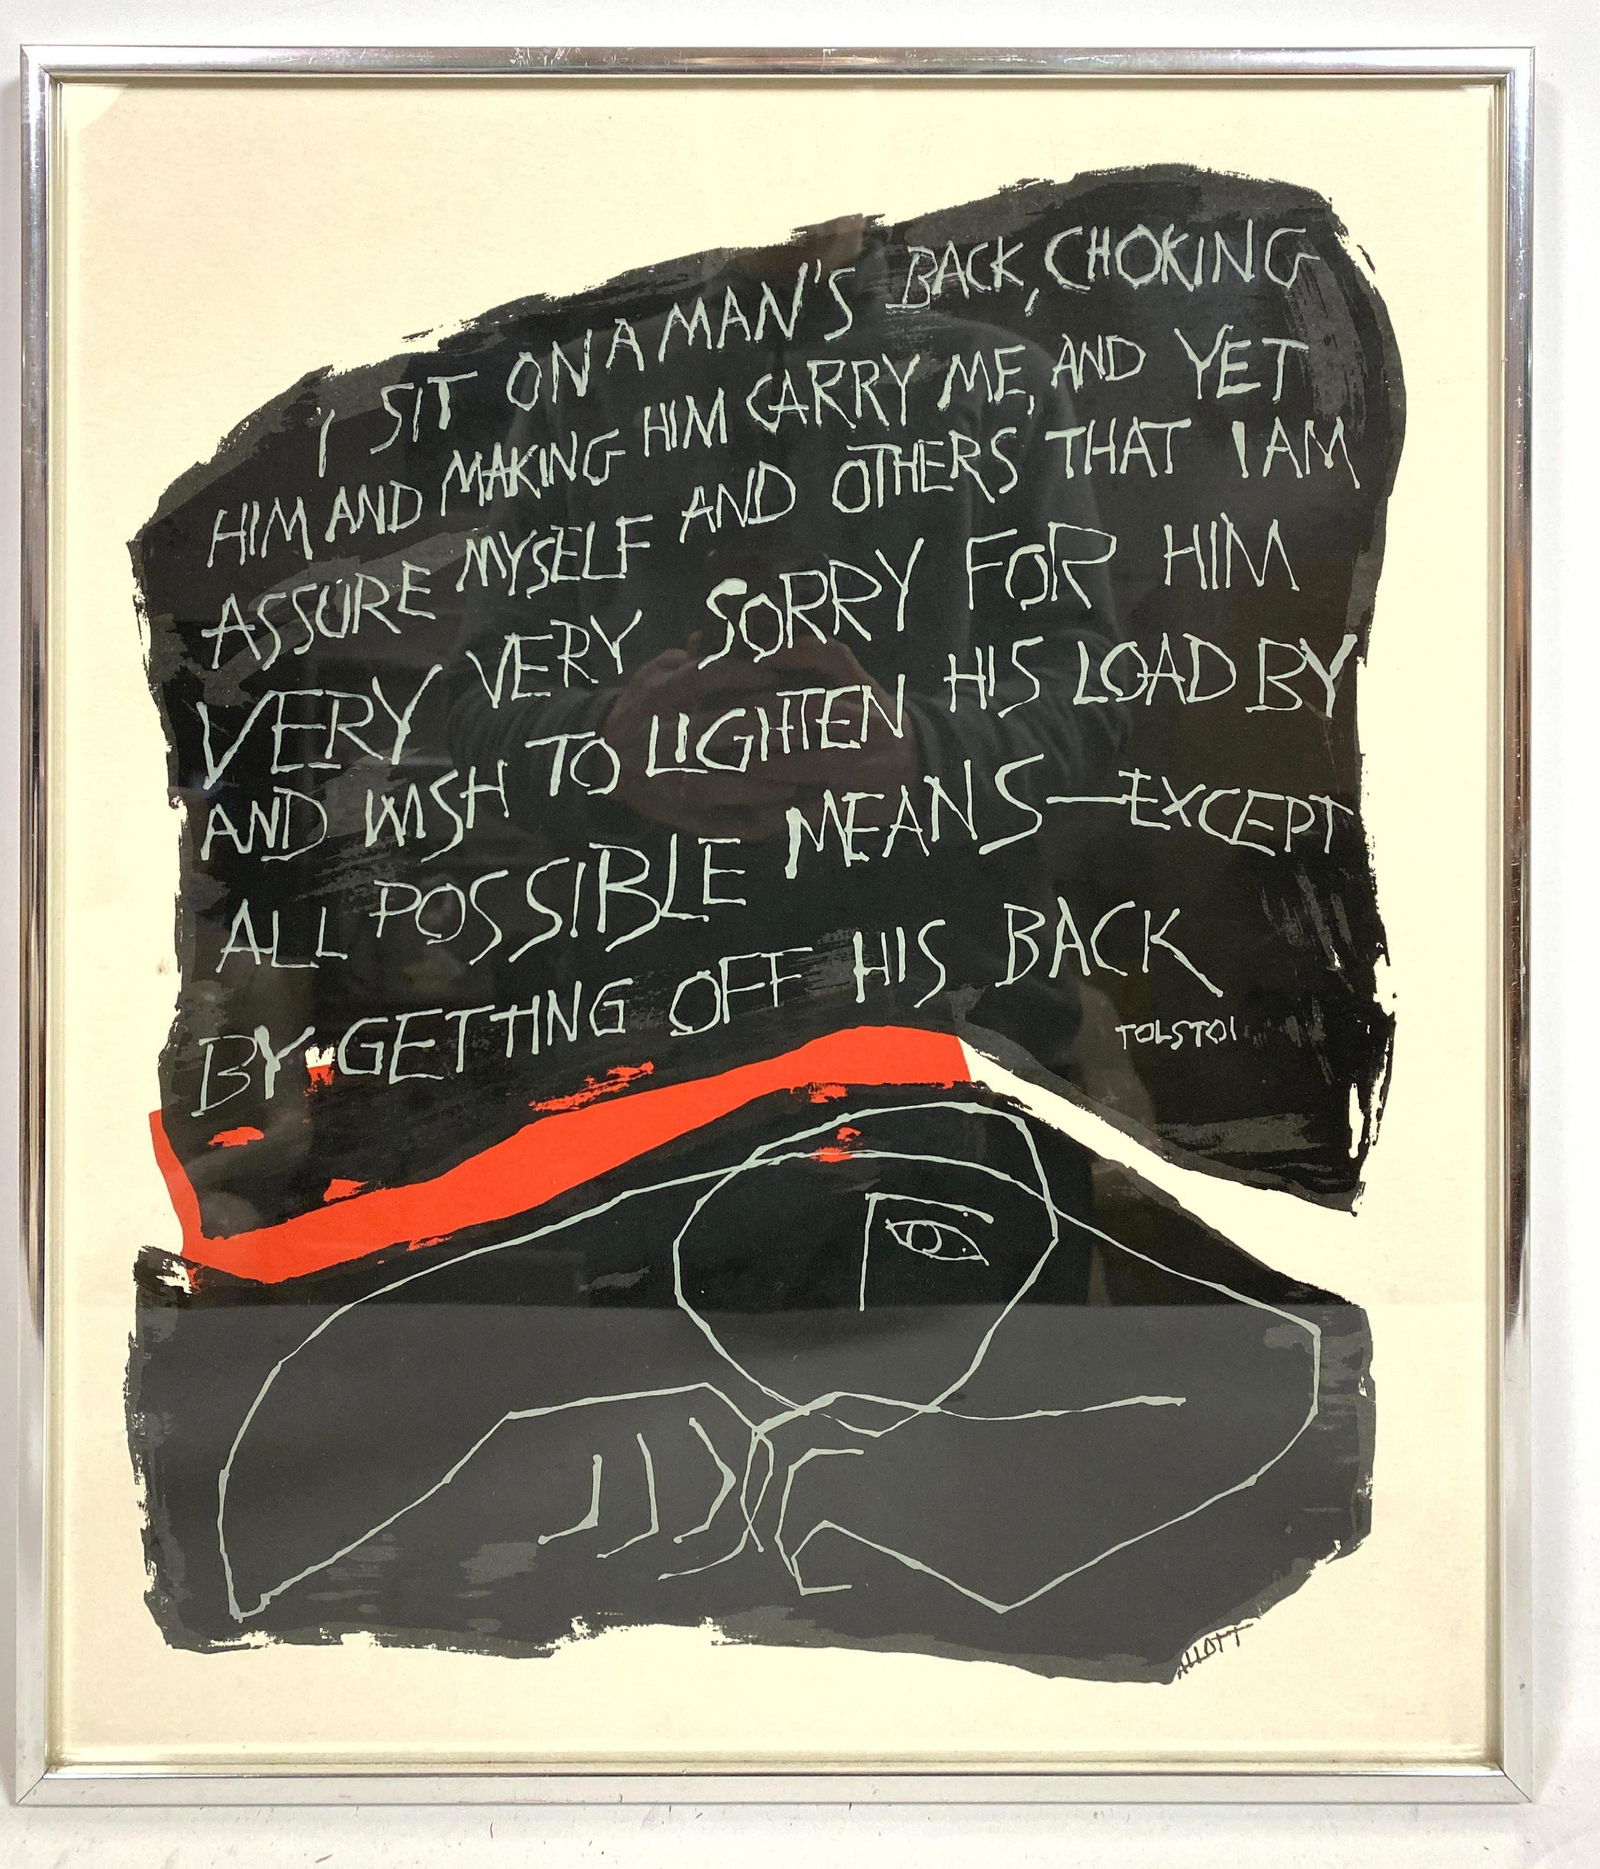 I SIT ON A MAN'S BACK, CHOKING
HIM AND MAKING HIM CARRY ME, AND YET
ASSURE MYSELF AND OTHERS THAT I AM
VERY VERY SORRY FOR HIM
AND WISH TO LIGHTEN HIS LOAD BY
ALL POSSIBLE MEANS—EXCEPT
BY GETTING OFF HIS BACK
TOLSTOI
ALLOTT